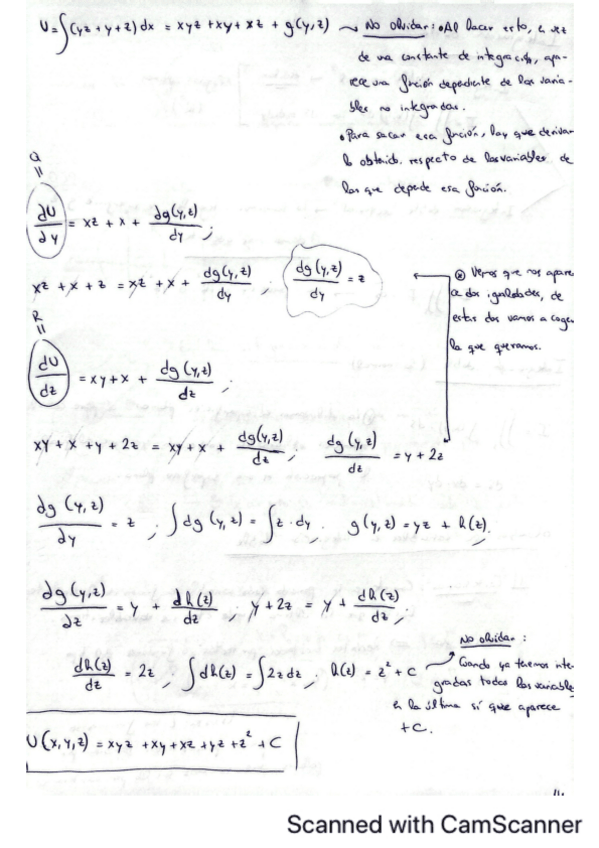 U = ∫(yz + y + z) dx = xyz + xy + xz + g(y,z) → No olvidar: • Al hacer esto, en vez
de una constante de integración, apa-
rece una función dependiente de las varia-
bles no integradas.
• Para sacar esa función, hay que derivar
lo obtenido respecto de las variables de
las que depende esa función.
Q
=
∂U/∂y = xz + x + dg(y,z)/dy ;
xz + x + z = xz + x + dg(y,z)/dy ; dg(y,z)/dy = z
⊗ Vemos que nos apare
ce dos igualdades, de
estas dos vamos a coger
la que queramos.
R
=
dU/dz = xy + x + dg(y,z)/dz ;
xy + x + y + 2z = xy + x + dg(y,z)/dz ; dg(y,z)/dz = y + 2z
dg(y,z)/dy = z ; ∫dg(y,z) = ∫z·dy, g(y,z) = yz + h(z),
dg(y,z)/dz = y + dh(z)/dz ; y + 2z = y + dh(z)/dz ;
dh(z)/dz = 2z ; ∫dh(z) = ∫2z dz ; h(z) = z² + C
No olvidar:
Cuando ya tenemos inte-
gradas todas las variables
en la última sí que aparece
+C.
U(x,y,z) = xyz + xy + xz + yz + z² + C
11.
Scanned with CamScanner